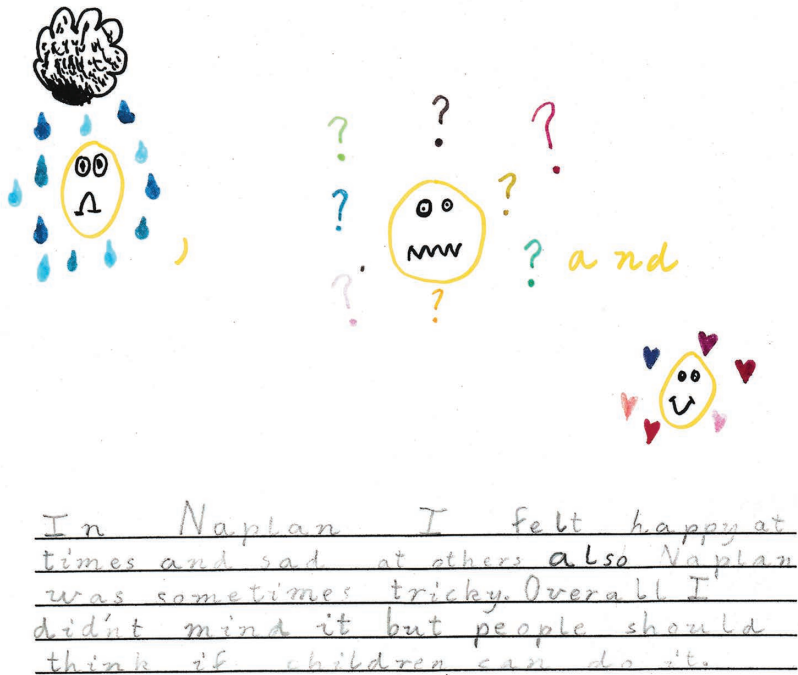 ? ? ?
? ?
, ? and
? ?
In Naplan I felt happy at
times and sad at others also Naplan
was sometimes tricky. Overall I
did'nt mind it but people should
think if children can do it.